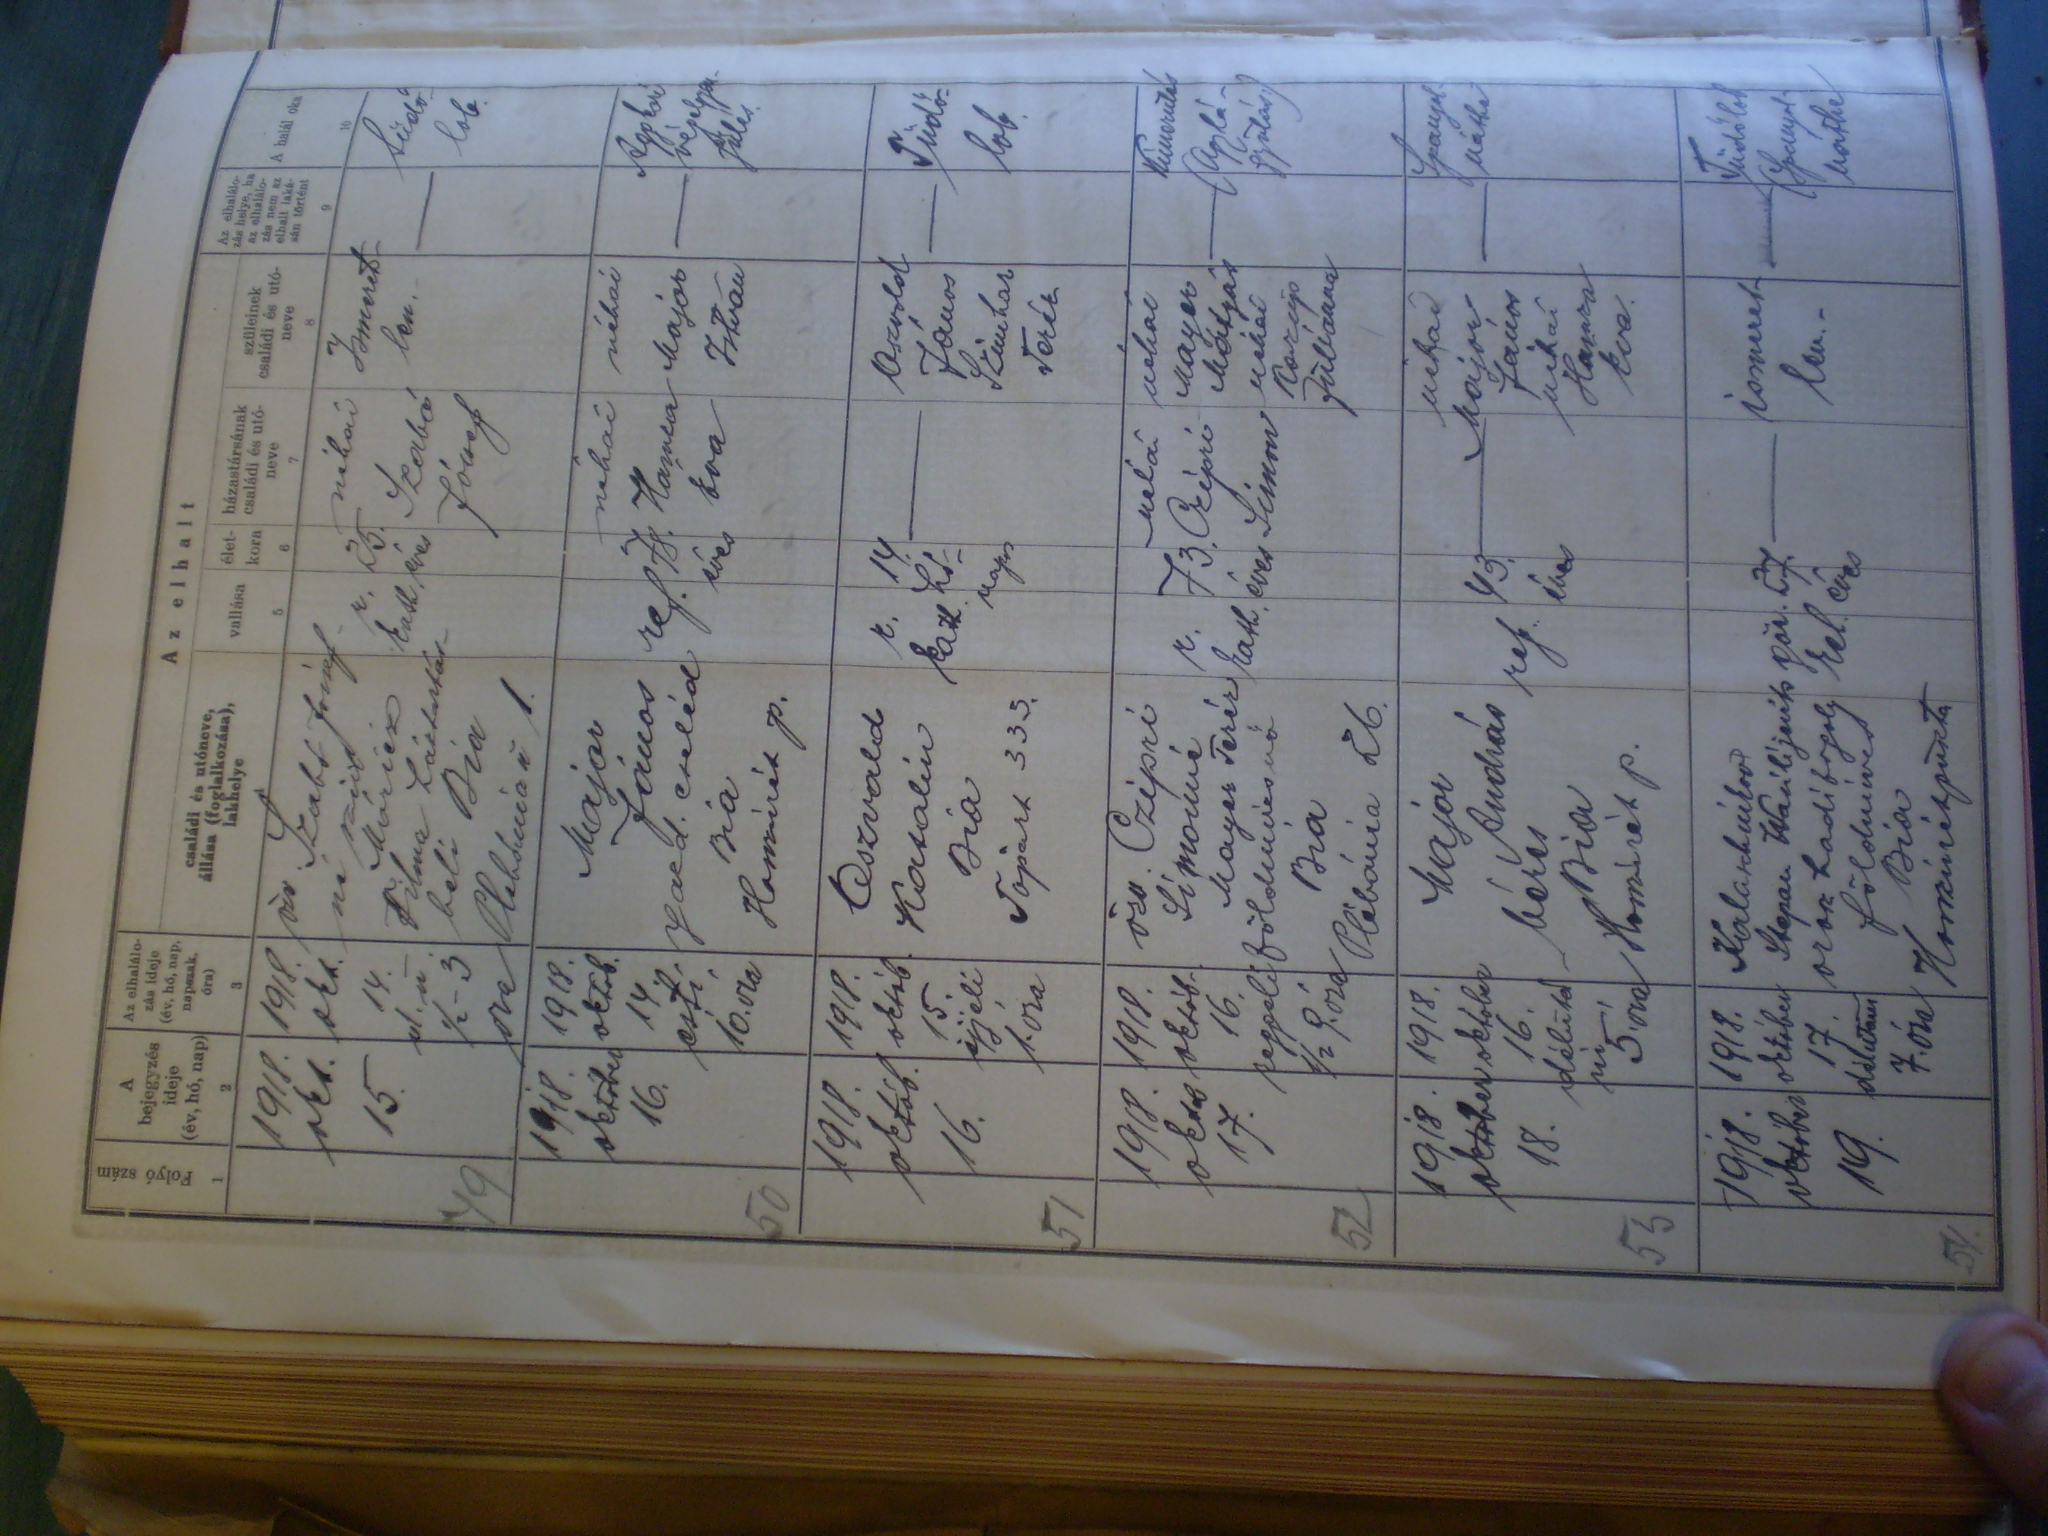 Az elhalt
Folyó szám
A bejegyzés ideje (év, hó, nap)
Az elhalálozás ideje (év, hó, nap, napszak, óra)
családi és utóneve, állása (foglalkozása), lakhelye
vallása
élet-kora
házastársának családi és utóneve
szüleinek családi és utóneve
Az elhalálozás helye, ha az elhalálozás nem az elhalt lakásán történt
A halál oka
1
2
3
5
6
7
8
9
10
49
1918.
okt.
15.
1918.
okt.
14.
½ 3
óra
özv. Szabó József
né
Móricz
Vilma
beli Bia
1.
r.
kath.
25.
éves
néhai
Szabó
József
Ismeret
len.-
Tüdő
lob.
50
1918.
október
16.
1918.
októb.
14.
esti
10. óra
Major
János
gazd. cseléd
Bia
p.
ref.
78.
éves
néhai
Hamza
Éva
néhai
Major
István
Aggkori
végelgyen-
gülés.
51
1918.
októb.
16.
1918.
októb.
15.
éjjeli
1. óra
Oszvald
Katalin
Bia
Tópart 335.
r.
kath.
14.
hó-
napos
Oszvald
János
Teréz
Tüdő-
lob.
52
1918.
október
17.
1918.
októb.
16.
reggeli
½ 9. óra
özv. Czépri
Simonné
Mayer Teréz
földmívesnő
Bia
Plébánia 26.
r.
kath.
73.
éves
néhai
Czépri
Simon
néhai
Mayer
Mátyás
néhai
Juliánna
(Aglá-
gyulás)
53
1918.
október
18.
1918.
október
16.
délutá-
ni
5 óra
Major
András
béres
Bia
p.
ref.
43.
éves
néhai
Major
János
néhai
Hamza
Éva.
Spanyol
nátha
54.
1918.
október
19.
1918.
október
17.
délután
7. óra
orosz hadifogoly
földmíves
Bia
gör.
kel.
27.
éves
ismeret-
len.-
Tüdőlob
(Spanyol-
nátha)